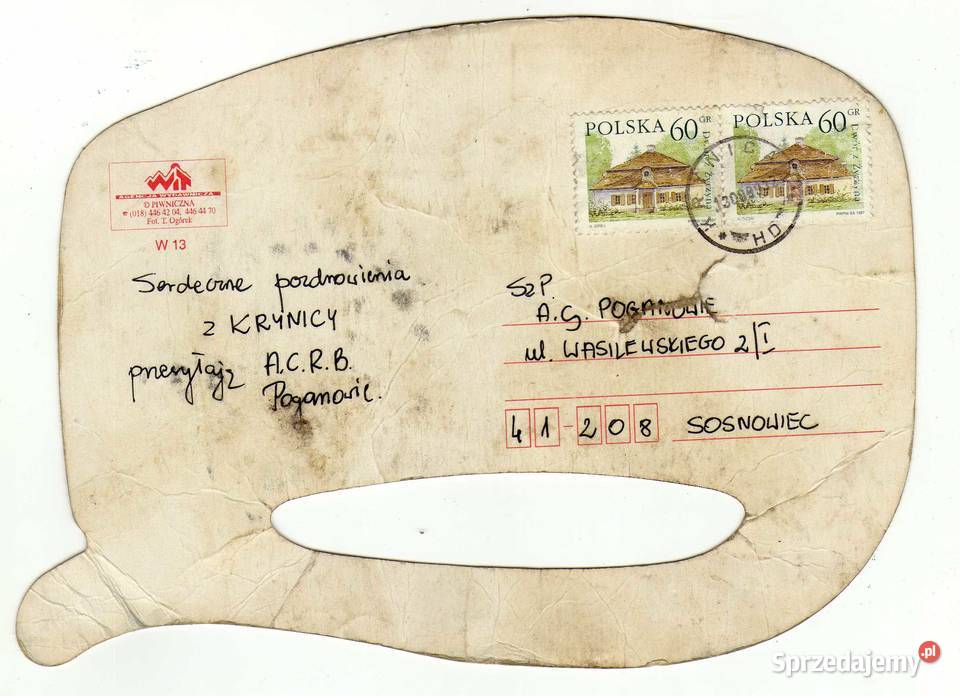 WiT
AGENCJA WYDAWNICZA
© PIWNICZNA
☎ (018) 446 42 04, 446 44 70
Fot. T. Ogórek
W 13
Serdeczne pozdrowienia
z KRYNICY
przesyłają A.C.R.B.
Poganowie.
POLSKA 60 GR
Dwór z Żyrzyna
POLSKA 60 GR
Dwór z Żyrzyna
PWPW SA 1997
KRYNICA
HD
SzP.
A.G. POGANOWIE
ul. WASILEWSKIEGO 2/I
41-208 SOSNOWIEC
Sprzedajemy.pl